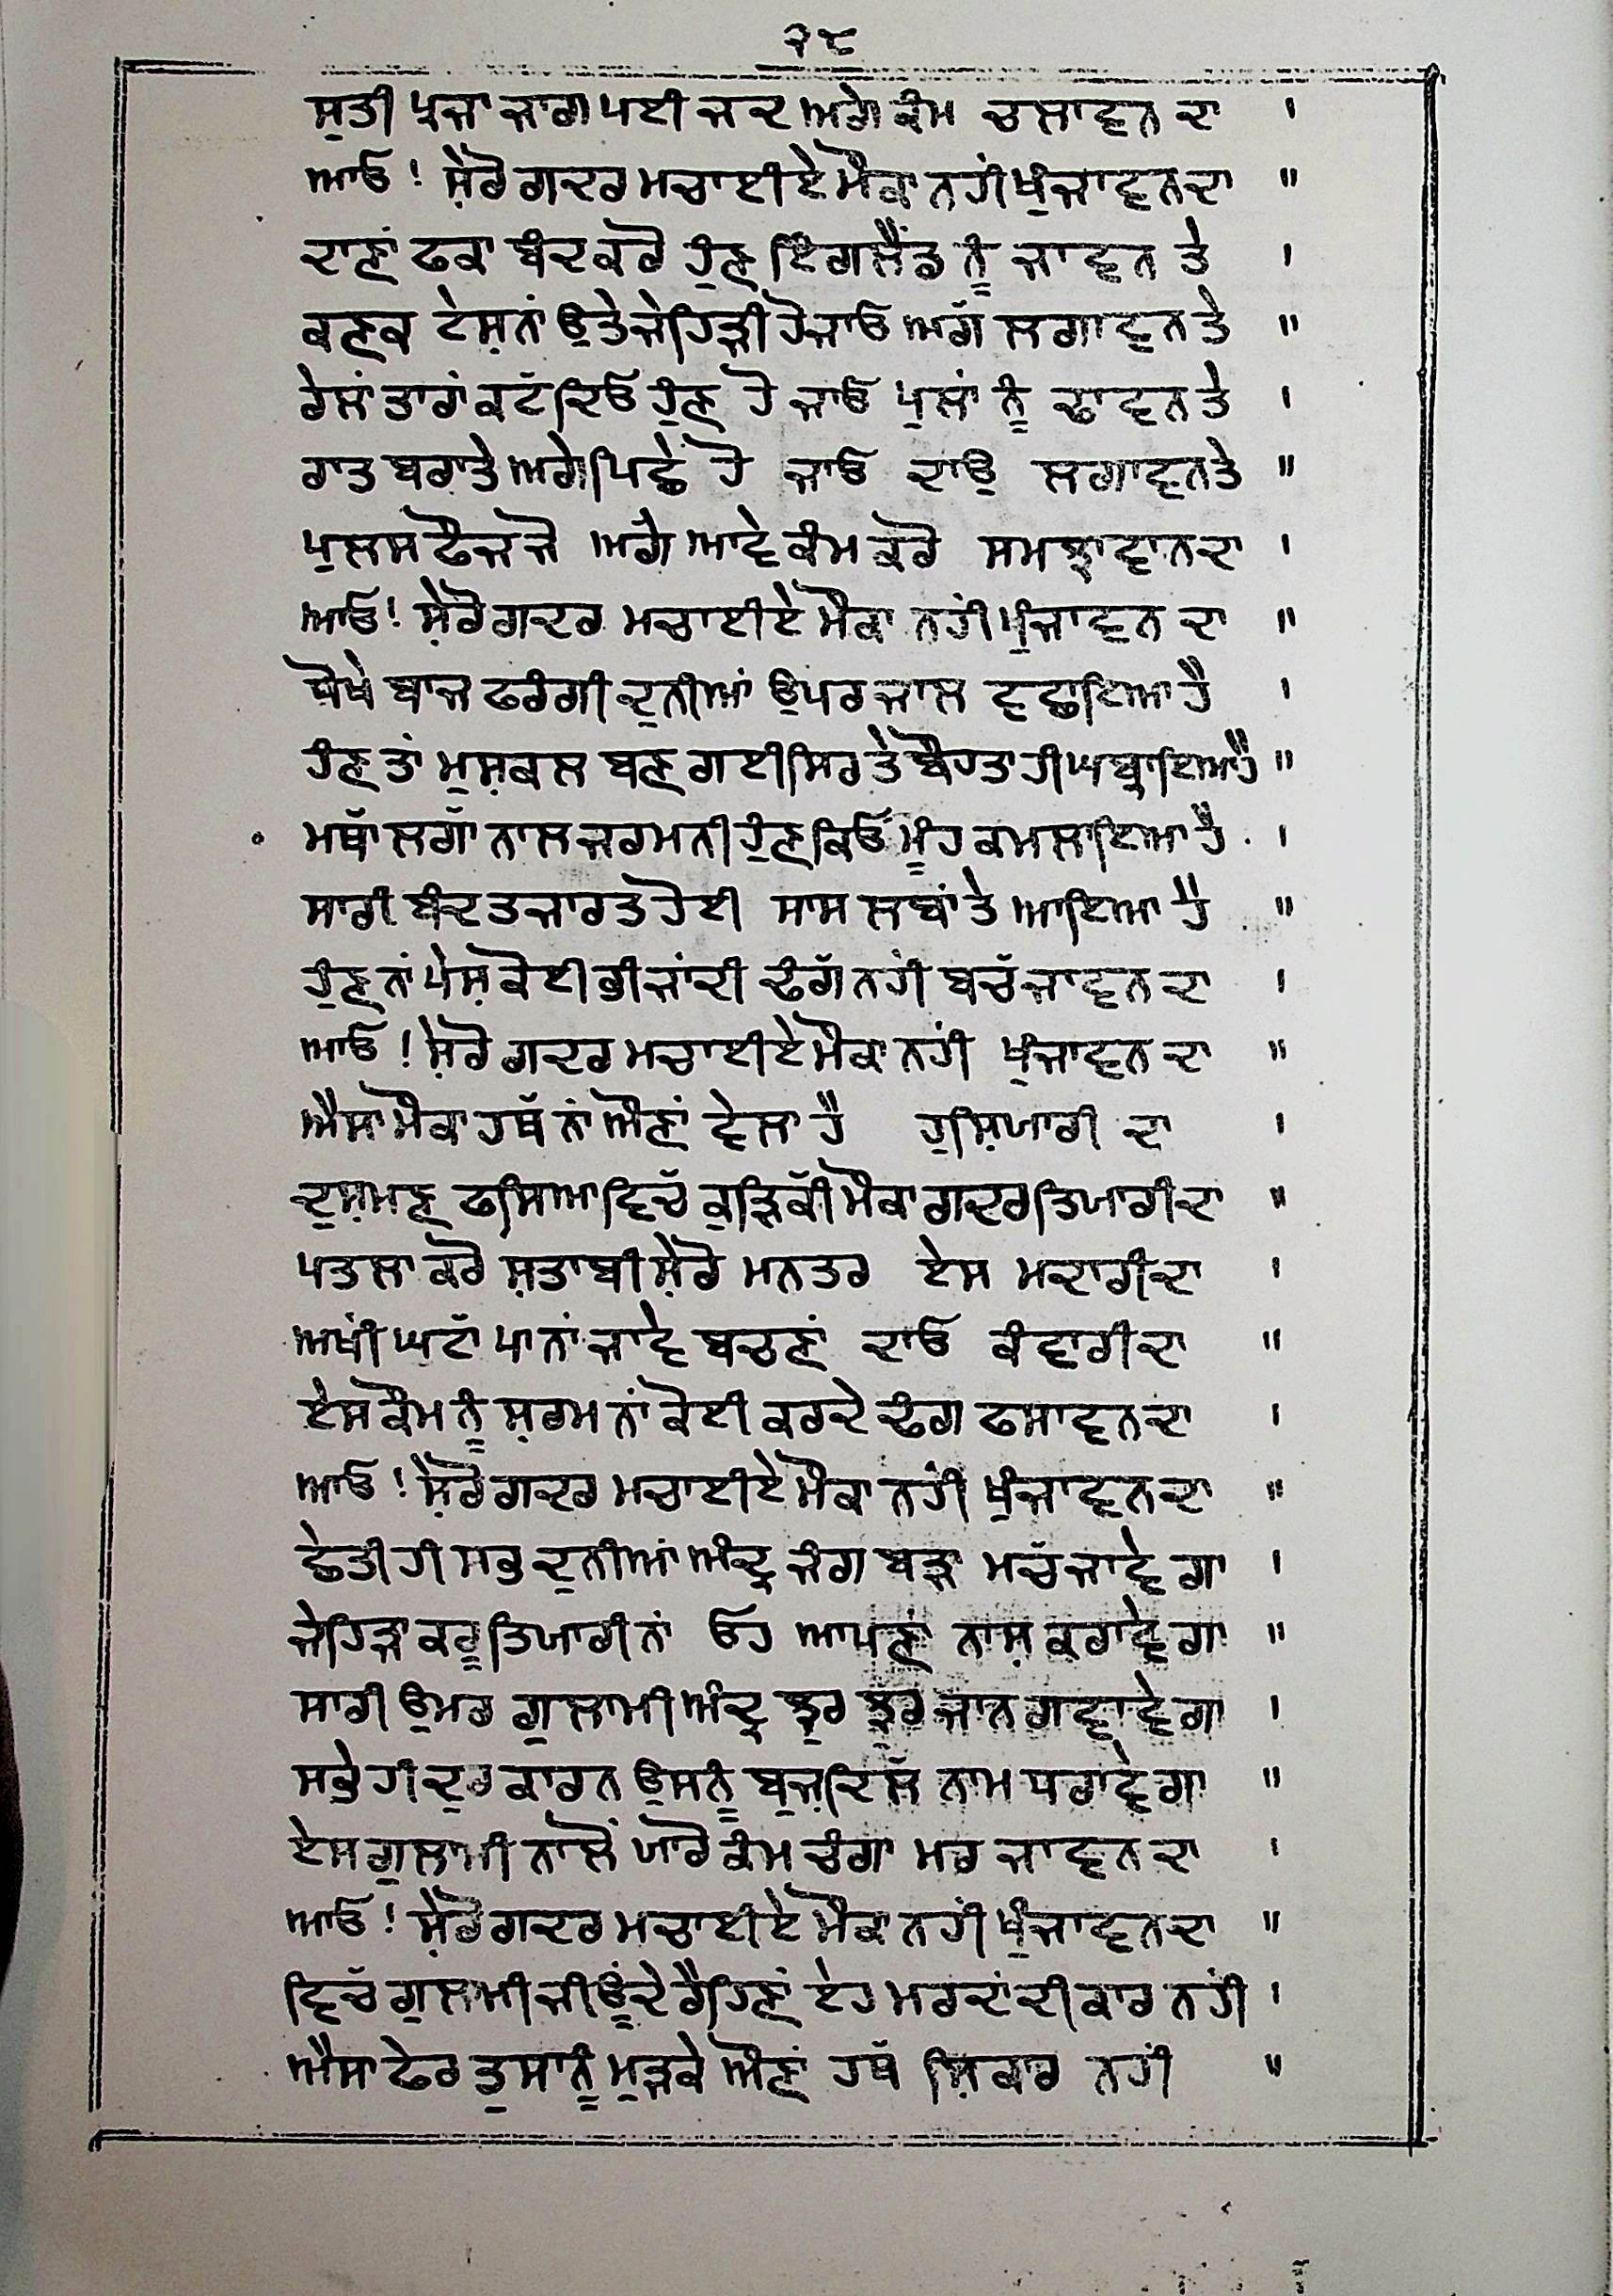 ੨੮
ਸੁਤੀ ਪ੍ਰਜਾ ਜਾਗ ਪਈ ਜਦ ਅਗੇ ਕੰਮ ਚਲਾਵਨ ਦਾ ।
ਆਓ! ਸ਼ੇਰੋ ਗਦਰ ਮਚਾਈਏ ਮੌਕਾ ਨਹੀਂ ਖੁੰਜਾਵਨ ਦਾ ॥
ਦਾਣਾਂ ਫਕਾ ਬੰਦ ਕਰੋ ਹੁੰਣ ਇੰਗਲੈਂਡ ਨੂੰ ਜਾਵਨ ਤੇ ।
ਕਣਕ ਟੇਸ਼ਨਾਂ ਉਤੇ ਜੇਹੜੀ ਹੋ ਜਾਓ ਅੱਗ ਲਗਾਵਨ ਤੇ ॥
ਰੇਲਾਂ ਤਾਰਾਂ ਕਟੱ ਦਿਓ ਹੁੰਣ ਹੋ ਜਾਓ ਪੁਲਾਂ ਨੂੰ ਢਾਵਨ ਤੇ ।
ਰਾਤ ਬਰਾਤੇ ਅਗੇ ਪਿਛੇ ਹੋ ਜਾਓ ਦਾਉ ਲਗਾਵਨ ਤੇ ॥
ਪੁਲਸ ਫੌਜ ਜੋ ਅਗੇ ਆਵੇ ਕੰਮ ਕਰੋ ਸਮਝਾਵਾਨ ਦਾ ।
ਆਓ! ਸ਼ੇਰੋ ਗਦਰ ਮਚਾਈਏ ਮੌਕਾ ਨਹੀਂ ਖੁੰਜਾਵਨ ਦਾ ॥
ਧੋਖੇ ਬਾਜ ਫਰੰਗੀ ਦੁਨੀਆਂ ਉਪਰ ਜਾਲ ਵਛਾਇਆ ਹੈ ।
ਹੰਣ ਤਾਂ ਮੁਸ਼ਕਲ ਬਣ ਗਈ ਸਿਰ ਤੇ ਬੌਹਤਾ ਹੀ ਘਬ੍ਰਾਇਆ ਹੈ ॥
ਮਥਾੱ ਲਗਾੱ ਨਾਲ ਜਰਮਨੀ ਹੁੰਣ ਕਿਓਂ ਮੂੰਹ ਕਮਲਾਇਆ ਹੈ ।
ਸਾਰੀ ਬੰਦ ਤਜਾਰਤ ਹੋਈ ਸਾਸ ਲਬਾਂ ਤੇ ਆਇਆ ਹੈ ॥
ਹੁੰਣ ਨਾਂ ਪੇਸ਼ ਕੋਈ ਭੀ ਜਾਂਦੀ ਢੰਗੱ ਨਹੀਂ ਬਚੱ ਜਾਵਨ ਦਾ ।
ਆਓ! ਸ਼ੇਰੋ ਗਦਰ ਮਚਾਈਏ ਮੌਕਾ ਨਹੀਂ ਖੁੰਜਾਵਨ ਦਾ ॥
ਐਸਾ ਮੌਕਾ ਹਥੱ ਨਾਂ ਔਣਾਂ ਵੇਲਾ ਹੈ ਹੁਸ਼ਿਯਾਰੀ ਦਾ ।
ਦੁਸ਼ਮਣ ਫਸਿਆ ਵਿਚੱ ਕੁੜਿਕੀੱ ਮੌਕਾ ਗਦਰ ਤਿਯਾਰੀ ਦਾ ॥
ਪਤਲਾ ਕਰੋ ਸ਼ਤਾਬੀ ਸ਼ੇਰੋ ਮਨਤਰ ਏਸ ਮਦਾਰੀ ਦਾ ।
ਅਖੀਂ ਘਟਾੱ ਪਾ ਨਾਂ ਜਾਵੇ ਬਚਣਾਂ ਦਾਓ ਕੰਵਾਰੀ ਦਾ ॥
ਏਸ ਕੌਮ ਨੂੰ ਸ਼ਰਮ ਨਾਂ ਕੋਈ ਕਰਦੇ ਢੰਗ ਫਸਾਵਨ ਦਾ ।
ਆਓ! ਸ਼ੇਰੋ ਗਦਰ ਮਚਾਈਏ ਮੌਕਾ ਨਹੀਂ ਖੁੰਜਾਵਨ ਦਾ ॥
ਛੇਤੀ ਹੀ ਸਭ ਦੁਨੀਆਂ ਅੰਦ੍ਰ ਜੰਗ ਬੜਾ ਮਚੱ ਜਾਵੇਗਾ ।
ਜੇਹੜਾ ਕਰੂ ਤਿਯਾਰੀ ਨਾਂ ਓਹ ਆਪਣਾਂ ਨਾਸ਼ ਕਰਾਵੇਗਾ ॥
ਸਾਰੀ ਉਮਰ ਗੁਲਾਮੀ ਅੰਦ੍ਰ ਝੁਰ ਝੁਰ ਜਾਨ ਗਵਾਵੇਗਾ ।
ਸਭੋ ਹੀ ਦੁਰਕਾਰਨ ਉਸਨੂੰ ਬੁਜ਼ਦਿਲੱ ਨਾਮ ਧਰਾਵੇਗਾ ॥
ਏਸ ਗੁਲਾਮੀ ਨਾਲੋਂ ਯਾਰੋ ਕੰਮ ਚੰਗਾ ਮਰ ਜਾਵਨ ਦਾ ।
ਆਓ! ਸ਼ੇਰੋ ਗਦਰ ਮਚਾਈਏ ਮੌਕਾ ਨਹੀਂ ਖੁੰਜਾਵਨ ਦਾ ॥
ਵਿਚੱ ਗੁਲਾਮੀ ਜੀਊਂਦੇ ਰੈਹਿਣਾਂ ਏਹ ਮਰਦਾਂ ਦੀ ਕਾਰ ਨਹੀਂ ।
ਐਸਾ ਫੇਰ ਤੁਸਾਨੂੰ ਮੁੜਕੇ ਔਣਾਂ ਹਥੱ ਸ਼ਿਕਾਰ ਨਹੀਂ ॥